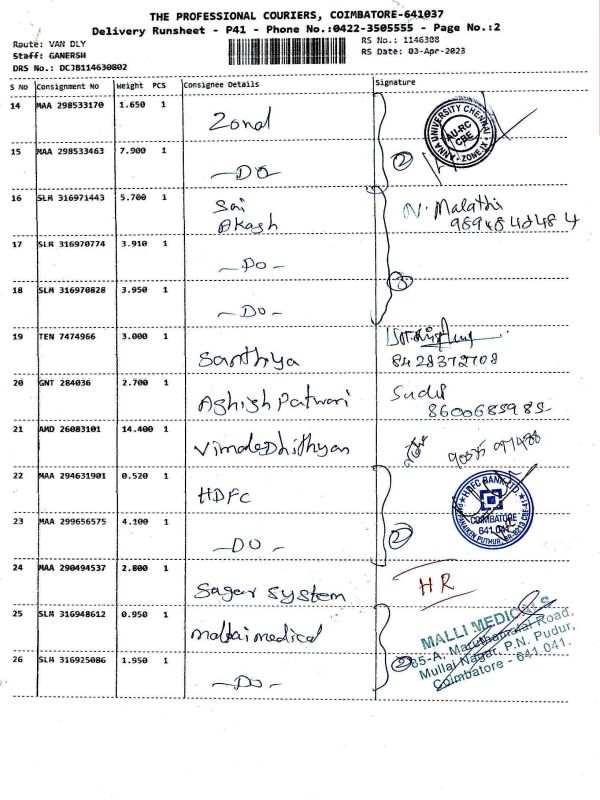 THE PROFESSIONAL COURIERS, COIMBATORE-641037
Delivery Runsheet - P41 - Phone No.:0422-3505555 - Page No.:2
Route: VAN DLY
RS No.: 1146308
Staff: GANERSH
RS Date: 03-Apr-2023
DRS No.: DCJB114630802
S No Consignment No Weight PCS Consignee Details Signature
14 MAA 298533170 1.650 1 Zonal
ANNA UNIVERSITY CHENNAI
AU-RC
CBE
ZONE IX
15 MAA 298533463 7.900 1 -DO- 2
16 SLM 316971443 5.700 1 Sai N. Malathi
Akash
17 SLM 316970774 3.910 1 -DO-
3
18 SLM 316970828 3.950 1 -DO-
19 TEN 7474966 3.000 1 Santhya 8428372708
20 GNT 284036 2.700 1 Ashish Patwari
21 AMD 26083101 14.400 1
22 MAA 294631901 0.520 1 HDFC
HDFC BANK LTD.
COIMBATORE
641 041
23 MAA 299656575 4.100 1 -DO- 2
24 MAA 290494537 2.800 1 Sager System HR
25 SLM 316948612 0.950 1 malli medical
MALLI MEDICALS
85-A, Maruthamalai Road,
Mullai Nagar, P.N. Pudur,
Coimbatore - 641 041.
26 SLM 316925086 1.950 1 -DO- 2